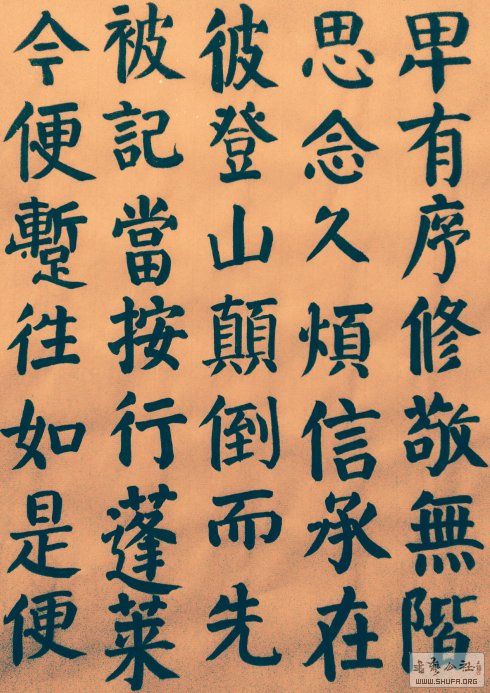 卑有序修敬無階
思念久煩信承在
彼登山顛倒而先
被記當按行蓬萊
今便蹔往如是便
公社
WWW.SHUFA.ORG